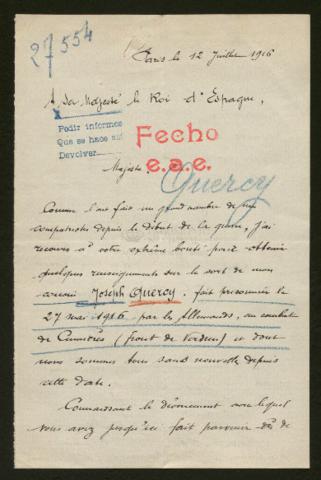 27554
Paris le 12 Juillet 1916
A Sa Majesté le Roi d'Espagne,
Pedir informes
Que se hace así
Devolver
Fecho
e.a.e.
Majesté.
Quercy
Comme l'ont fait un grand nombre de mes
compatriotes depuis le début de la guerre, j'ai
recours à votre extrême bonté pour obtenir
quelques renseignements sur le sort de mon
cousin Joseph Quercy, fait prisonnier le
27 mai 1916 par les Allemands, au combat
de Cumières (front de Verdun) et dont
nous sommes tous sans nouvelle depuis
cette date.
Connaissant le dévouement avec lequel
vous avez jusqu'ici fait parvenir de